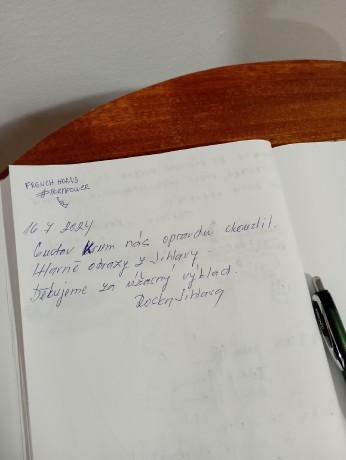 FRENCH HORNS
#HORNPOWER
16.7 2024
Gustav Krum nás opravdu okouzlil.
Hlavně obrazy z Jihlavy.
Děkujeme za úžasný výklad.
Jihlava